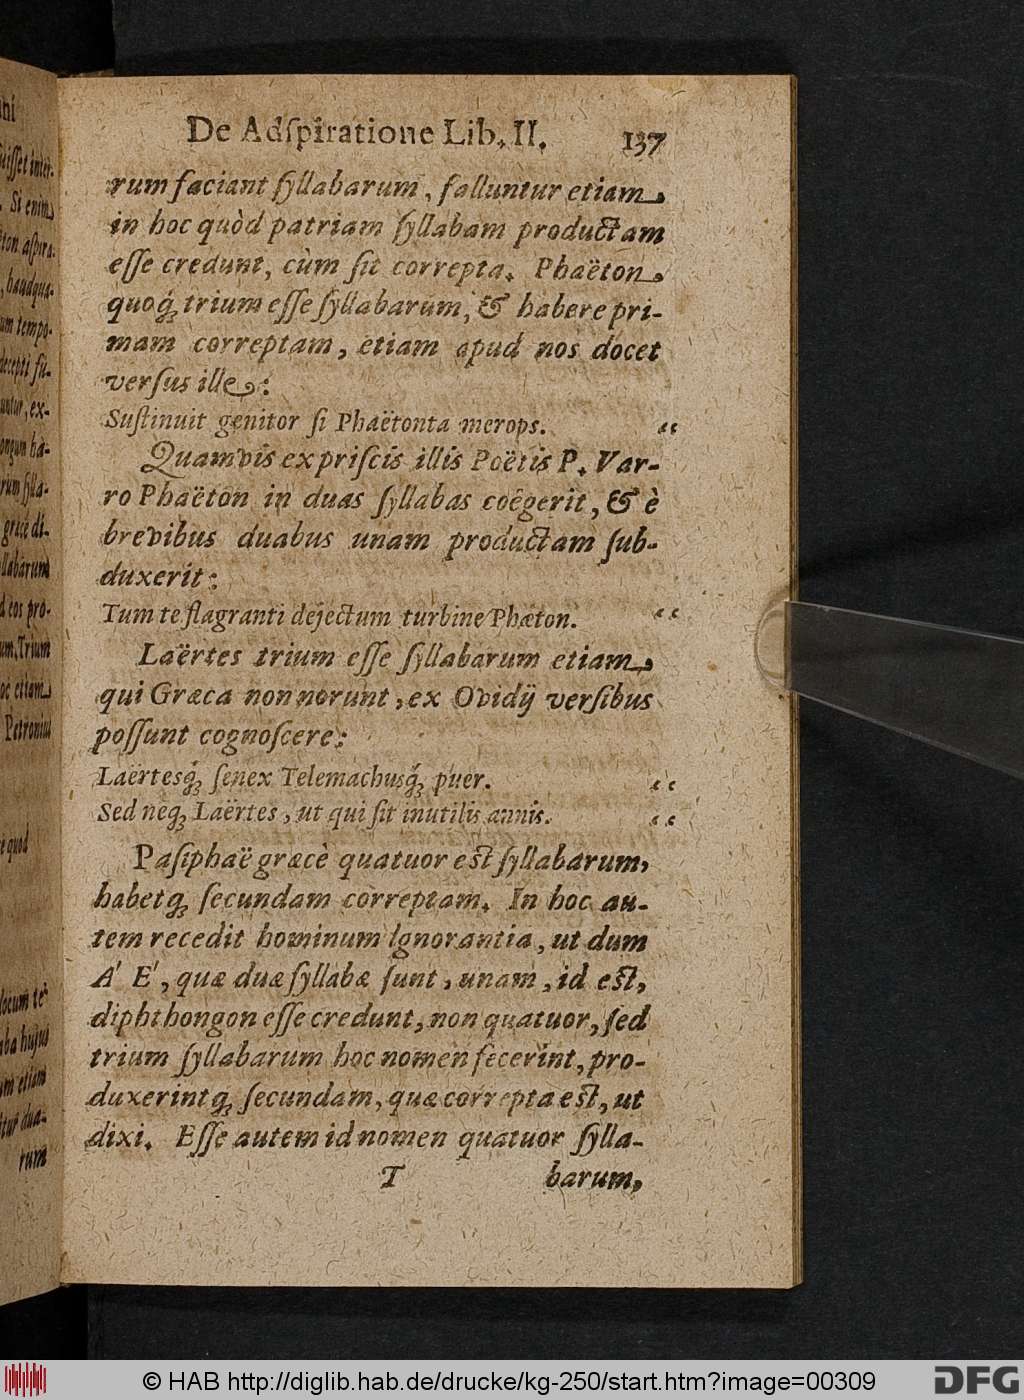 De Adſpiratione Lib. II. 137
rum faciant ſyllabarum, falluntur etiam,
in hoc quòd patriam ſyllabam productam
eſſe credunt, cùm ſit correpta. Phaëton,
quoq́ꝫ trium eſſe ſyllabarum, & habere pri-
mam correptam, etiam apud nos docet
verſus ille:
Suſtinuit genitor ſi Phaëtonta merops. “
Quamvis ex priſcis illis Poëtis P. Var-
ro Phaëton in duas ſyllabas coëgerit, & è
brevibus duabus unam productam ſub-
duxerit:
Tum te flagranti dejectum turbine Phæton. “
Laërtes trium eſſe ſyllabarum etiam,
qui Græca non norunt, ex Ovidij verſibus
poſſunt cognoſcere:
Laërtesq́ꝫ ſenex Telemachusq́ꝫ puer. “
Sed neqꝫ Laërtes, ut qui ſit inutilis annis. “
Paſiphaë græcè quatuor eſt ſyllabarum,
habetqꝫ ſecundam correptam. In hoc au-
tem recedit hominum ignorantia, ut dum
A' E', quæ duæ ſyllabæ ſunt, unam, id eſt,
diphthongon eſſe credunt, non quatuor, ſed
trium ſyllabarum hoc nomen fecerint, pro-
duxerintqꝫ ſecundam, quæ correpta eſt, ut
dixi. Eſſe autem id nomen quatuor ſylla-
T barum,
ni
uiſſet inter-
. Si enim
ton aſpira-
, haudqua-
um tempo-
decepti ſu-
untur, ex-
ongum ha-
rum ſylla-
græcè di-
llabarum
d eos pro-
um. Trium
oc etiam
Petronius
e quod
locum te-
aba hujus
um etiam
itur dua-
rum
© HAB http://diglib.hab.de/drucke/kg-250/start.htm?image=00309
DFG